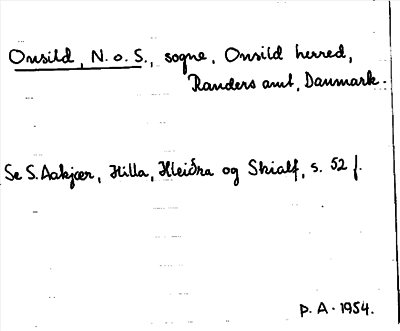 Onsild, N. o. S., sogne, Onsild herred,
Randers amt, Danmark.
Se S. Aakjær, Hilla, Hleiðra og Skialf, s. 52 f.
P. A. 1954.